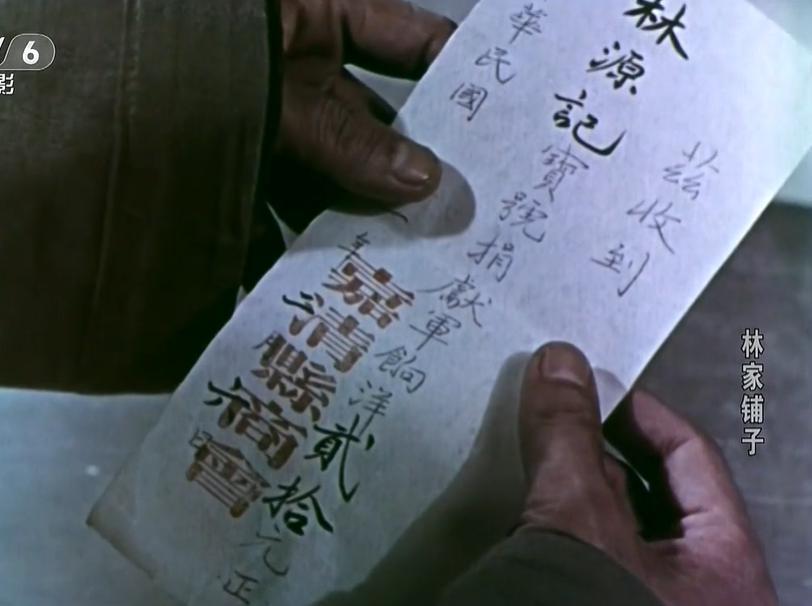 茲收到
林源記寶號捐獻軍餉洋貳拾元正
華民國一年二月六日
嘉清縣商會
林家铺子
6
影